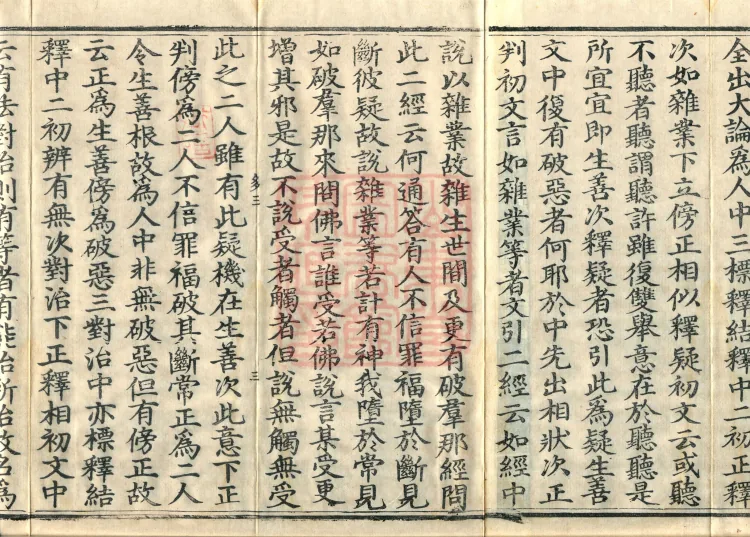 全出大論為人中三標釋結釋中二初正釋
次如雜業下立傍正相似釋疑初文云或聽
不聽者聽謂聽許雖復雙舉意在於聽聽是
所宜宜即生善次釋疑者恐引此為疑生善
文中復有破惡者何耶於中先出相狀次正
判初文言如雜業等者文引二經云如經中
說以雜業故雜生世間及更有破羣那經問
此二經云何通答有人不信罪福墮於斷見
斷彼疑故說雜業等若計有神我墮於常見
如破羣那來問佛言誰受若佛說言某受更
增其邪是故不說受者觸者但說無觸無受
此之二人雖有此疑機在生善次此意下正
判傍為二人不信罪福破其斷常正為二人
令生善根故為人中非無破惡但有傍正故
云正為生善傍為破惡三對治中亦標釋結
釋中二初辨有無次對治下正釋相初文中
云有法對治則有等者有能治所治故名為
三